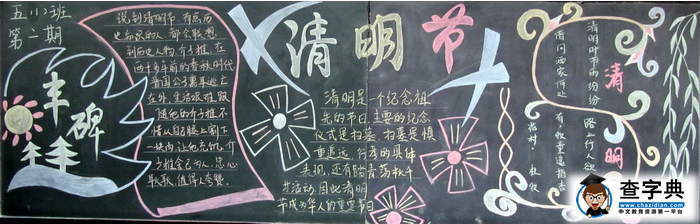 五(1)班
第二期
丰碑
说到清明节，有历
史知识的人，都会联想
到历史人物介子推。在
两千多年前的春秋时代
晋国公子重耳逃亡
在外，生活艰难，跟
随他的介子推不
惜从自己腿上割下
一块肉让他充饥。介
子推舍己为人、忠心
耿耿，值得人学赞。
清明节
清明是一个纪念祖
先的节日，主要的纪念
仪式是扫墓，扫墓是慎
重追远、行孝的具体
表现，还有踏青荡秋千
等活动，因此清明
节成为华人的重要节日
清明
清明时节雨纷纷
路上行人欲
借问酒家何处
有牧童遥指杏
花村
杜牧
查字典
www.chazidian.com
中文教育资源第一平台